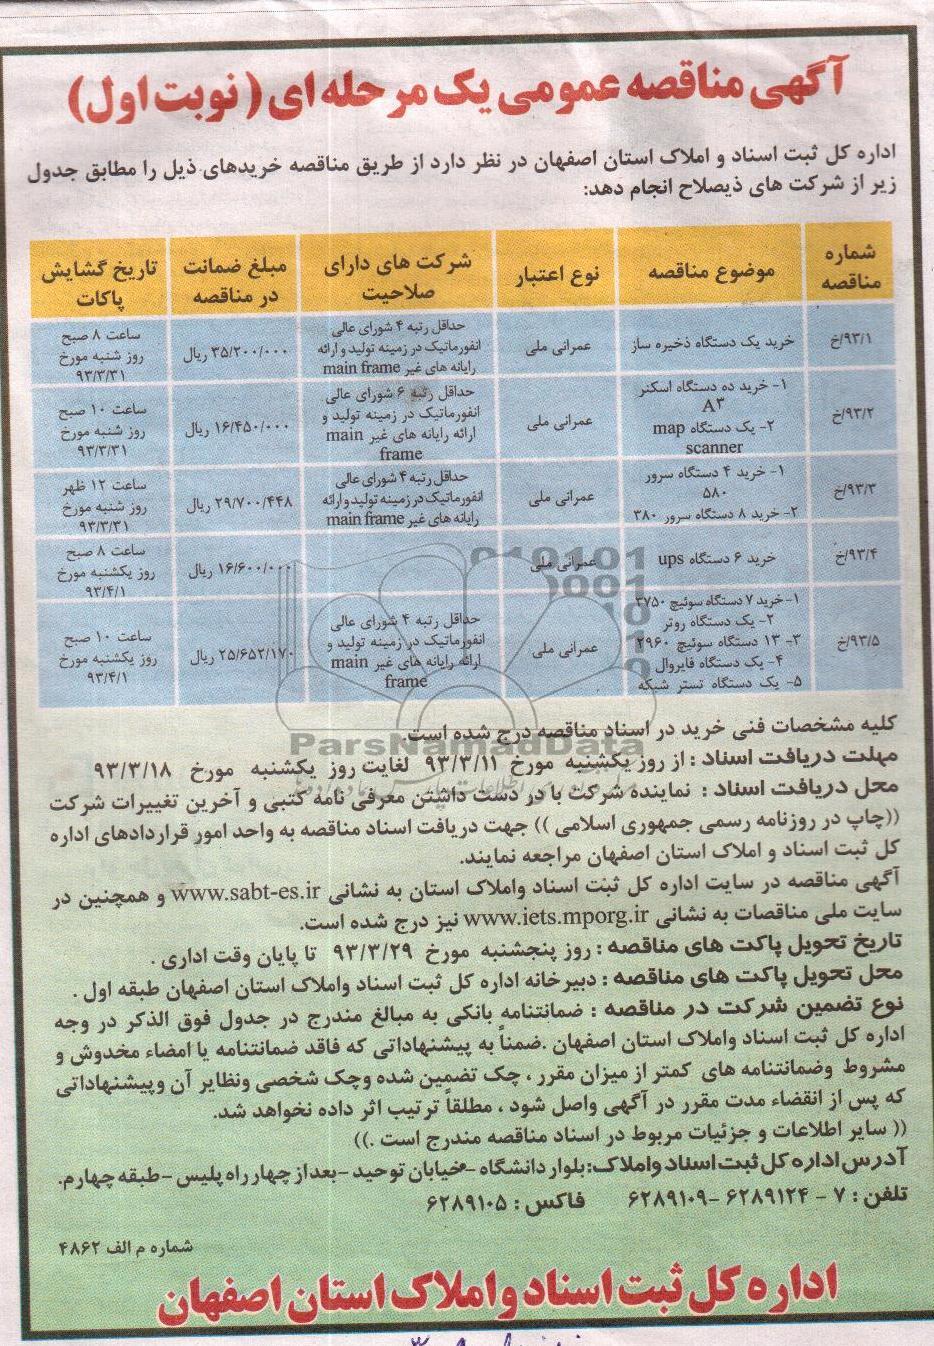 آگهی مناقصه عمومی یک مرحله ای (نوبت اول)
اداره کل ثبت اسناد و املاک استان اصفهان در نظر دارد از طریق مناقصه خریدهای ذیل را مطابق جدول
زیر از شرکت های ذیصلاح انجام دهد:
شماره مناقصه | موضوع مناقصه | نوع اعتبار | شرکت های دارای صلاحیت | مبلغ ضمانت در مناقصه | تاریخ گشایش پاکات
۹۳/۱/خ | خرید یک دستگاه ذخیره ساز | عمرانی ملی | حداقل رتبه ۴ شورای عالی انفورماتیک در زمینه تولید و ارائه رایانه های غیر main frame | ۳۵/۲۰۰/۰۰۰ ریال | ساعت ۸ صبح روز شنبه مورخ ۹۳/۳/۳۱
۹۳/۲/خ | ۱- خرید ده دستگاه اسکنر A۳ ۲- یک دستگاه map scanner | عمرانی ملی | حداقل رتبه ۶ شورای عالی انفورماتیک در زمینه تولید و ارائه رایانه های غیر main frame | ۱۶/۴۵۰/۰۰۰ ریال | ساعت ۱۰ صبح روز شنبه مورخ ۹۳/۳/۳۱
۹۳/۳/خ | ۱- خرید ۴ دستگاه سرور ۵۸۰ ۲- خرید ۸ دستگاه سرور ۳۸۰ | عمرانی ملی | حداقل رتبه ۴ شورای عالی انفورماتیک در زمینه تولید و ارائه رایانه های غیر main frame | ۲۹/۷۰۰/۴۴۸ ریال | ساعت ۱۲ ظهر روز شنبه مورخ ۹۳/۳/۳۱
۹۳/۴/خ | خرید ۶ دستگاه ups | عمرانی ملی | ۱۶/۶۰۰/۰۰۰ ریال | ساعت ۸ صبح روز یکشنبه مورخ ۹۳/۴/۱
۹۳/۵/خ | ۱-خرید ۷ دستگاه سوئیچ ۳۷۵۰ ۲- یک دستگاه روتر ۳- ۱۳ دستگاه سوئیچ ۲۹۶۰ ۴- یک دستگاه فایروال ۵- یک دستگاه تستر شبکه | عمرانی ملی | حداقل رتبه ۴ شورای عالی انفورماتیک در زمینه تولید و ارائه رایانه های غیر main frame | ۲۵/۶۵۲/۱۷۰ ریال | ساعت ۱۰ صبح روز یکشنبه مورخ ۹۳/۴/۱
کلیه مشخصات فنی خرید در اسناد مناقصه درج شده است.
ParsNamadData
مهلت دریافت اسناد : از روز یکشنبه مورخ ۹۳/۳/۱۱ لغایت روز یکشنبه مورخ ۹۳/۳/۱۸
محل دریافت اسناد : نماینده شرکت با در دست داشتن معرفی نامه کتبی و آخرین تغییرات شرکت
((چاپ در روزنامه رسمی جمهوری اسلامی )) جهت دریافت اسناد مناقصه به واحد امور قراردادهای اداره
کل ثبت اسناد و املاک استان اصفهان مراجعه نمایند.
آگهی مناقصه در سایت اداره کل ثبت اسناد واملاک استان به نشانی www.sabt-es.ir و همچنین در
سایت ملی مناقصات به نشانی www.iets.mporg.ir نیز درج شده است.
تاریخ تحویل پاکت های مناقصه : روز پنجشنبه مورخ ۹۳/۳/۲۹ تا پایان وقت اداری .
محل تحویل پاکت های مناقصه : دبیرخانه اداره کل ثبت اسناد واملاک استان اصفهان طبقه اول .
نوع تضمین شرکت در مناقصه : ضمانتنامه بانکی به مبالغ مندرج در جدول فوق الذکر در وجه
اداره کل ثبت اسناد واملاک استان اصفهان .ضمناً به پیشنهاداتی که فاقد ضمانتنامه یا امضاء مخدوش و
مشروط وضمانتنامه های کمتر از میزان مقرر ، چک تضمین شده وچک شخصی ونظایر آن وپیشنهاداتی
که پس از انقضاء مدت مقرر در آگهی واصل شود ، مطلقاً ترتیب اثر داده نخواهد شد.
(( سایر اطلاعات و جزئیات مربوط در اسناد مناقصه مندرج است .))
آدرس اداره کل ثبت اسناد واملاک:بلوار دانشگاه -خیابان توحید -بعد از چهار راه پلیس -طبقه چهارم.
تلفن : ۷ - ۶۲۸۹۱۲۴ -۶۲۸۹۱۰۹ فاکس : ۶۲۸۹۱۰۵
شماره م الف ۴۸۶۲
اداره کل ثبت اسناد و املاک استان اصفهان